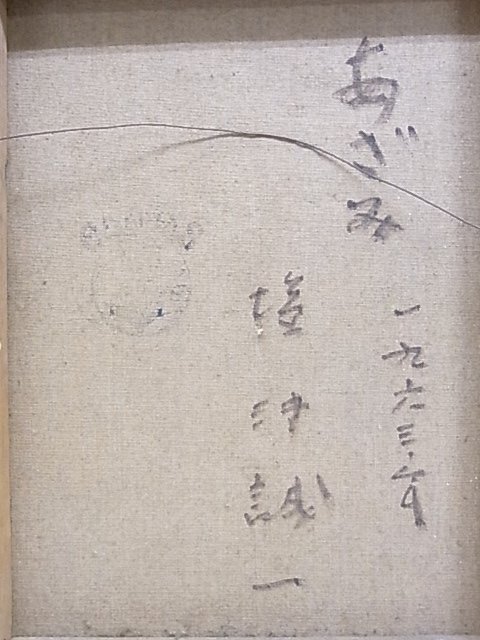 あざみ
一九六三・六月
塩沖誠一